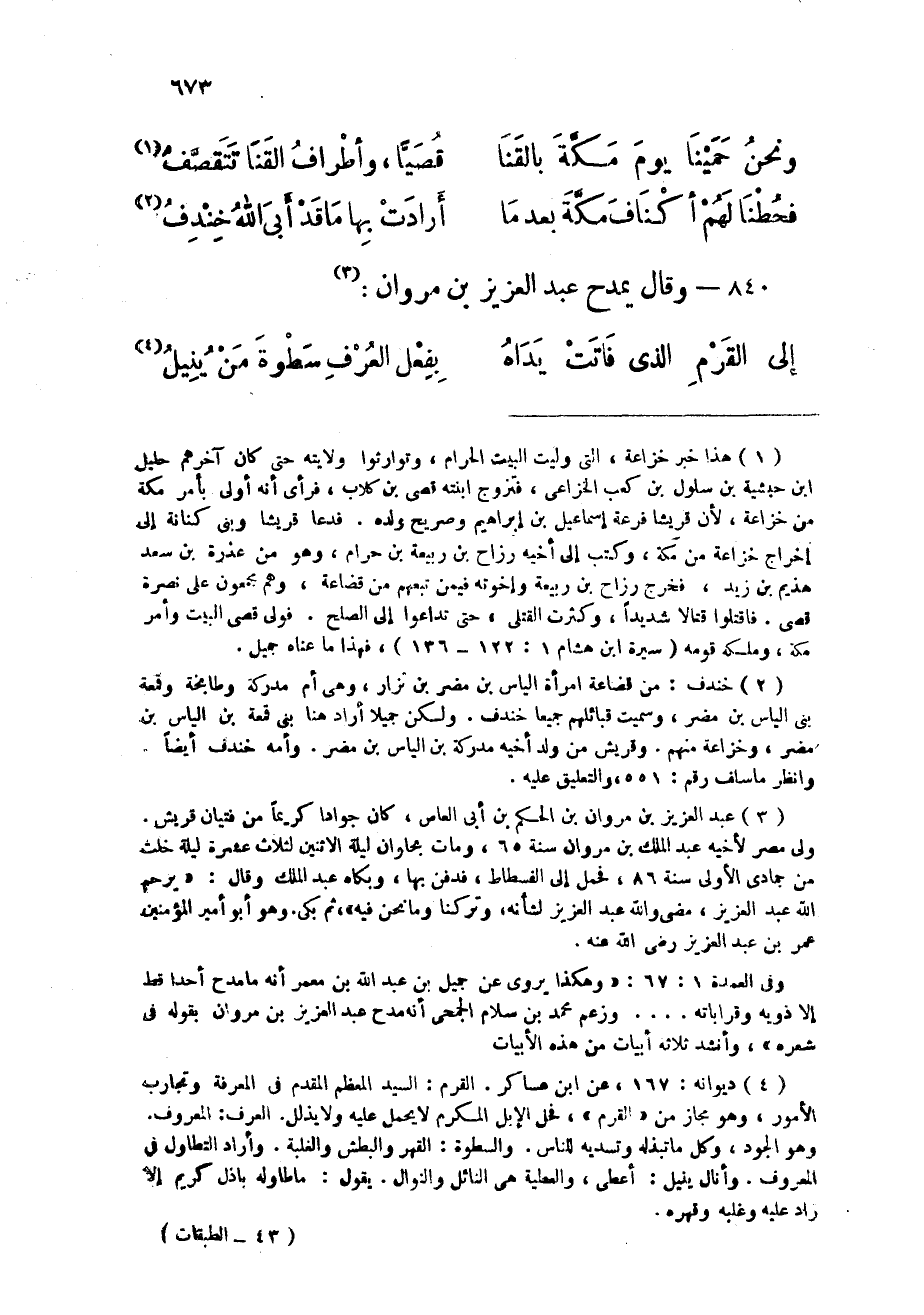 ٦٧٣
ونحنُ حَمَيْنَا يومَ مَـكَّةَ بالقَنَا قُصَيًّا، وأطْرافُ القَنَا تَتَقصَّفُ(١)
فحُطْنَا لَهُمْ أكْنَافَ مَكَّةَ بعد مَا أرادَتْ بِها مَا قَدْ أَبى اللهُ خِنْدِفُ(٢)
٨٤٠ — وقال يمدح عبد العزيز بن مروان :(٣)
إلى القَرْمِ الذى فَاتَتْ يَدَاهُ بِفِعْل العُرْفِ سَطْوةَ مَنْ يُنِيلُ(٤)
( ١ ) هذا خبر خزاعة ، التى وليت البيت الحرام ، وتوارثوا ولايته حتى كان آخرهم حليل
ابن حبشية بن سلول بن كعب الخزاعى ، فتزوج ابنته قصى بن كلاب ، فرأى أنه أولى بأمر مكة
من خزاعة ، لأن قريشا فرعة إسماعيل بن إبراهيم وصريح ولده . فدعا قريشا وبنى كنانة إلى
إخراج خزاعة من مكة ، وكتب إلى أخيه رزاح بن ربيعة بن حرام ، وهو من عذرة بن سعد
هذيم بن زيد ، فخرج رزاح بن ربيعة وإخوته فيمن تبعهم من قضاعة ، وهم مجمعون على نصرة
قصى . فاقتلوا قتالا شديداً ، وكثرت القتلى ، حتى تداعوا إلى الصلح . فولى قصى البيت وأمر
مكة ، وملكه قومه ( سيرة ابن هشام ١ : ١٢٢ – ١٣٦ ) ، فهذا ما عناه جميل .
( ٢ ) خندف : من قضاعة امرأة الياس بن مضر بن نزار ، وهى أم مدركة وطابخة وقمعة
بنى الياس بن مضر ، وسميت قبائلهم جميعا خندف . ولكن جميلا أراد هنا بنى قمعة بن الياس بن
مضر ، وخزاعة منهم . وقريش من ولد أخيه مدركة بن الياس بن مضر . وأمه خندف أيضاً .
وانظر ماسلف رقم : ٥٥١ ، والتعليق عليه .
( ٣ ) عبد العزيز بن مروان بن الحكم بن أبى العاس ، كان جوادا كريماً من فتيان قريش .
ولى مصر لأخيه عبد الملك بن مروان سنة ٦٥ ، ومات بحلوان ليلة الاثنين لثلاث عشرة ليلة خلت
من جمادى الأولى سنة ٨٦ ، فحمل إلى الفسطاط ، فدفن بها ، وبكاه عبد الملك وقال : « يرحم
الله عبد العزيز ، مضى والله عبد العزيز لشأنه، وتركنا وما نحن فيه»، ثم بكى. وهو أبو أمير المؤمنين
عمر بن عبد العزيز رضى الله عنه .
وفى العمدة ١ : ٦٧ : « وهكذا يروى عن جميل بن عبد الله بن معمر أنه مامدح أحدا قط
إلا ذويه وقراباته . . . . وزعم محمد بن سلام الجمحى أنه مدح عبد العزيز بن مروان بقوله فى
شعره » ، وأنشد ثلاثه أبيات من هذه الأبيات
( ٤ ) ديوانه : ١٦٧ ، عن ابن عساكر . القرم : السيد المعظم المقدم فى المعرفة وتجارب
الأمور ، وهو مجاز من « القرم » ، فحل الإبل المكرم لايحمل عليه ولايذلل. العرف: المعروف.
وهو الجود ، وكل ماتبذله وتسديه للناس . والسطوة : القهر والبطش والغلبة . وأراد التطاول فى
المعروف . وأنال ينيل : أعطى ، والعطية هى النائل والنوال . يقول : ماطاوله باذل كريم إلا
زاد عليه وغلبه وقهره .
( ٤٣ – الطبقات )